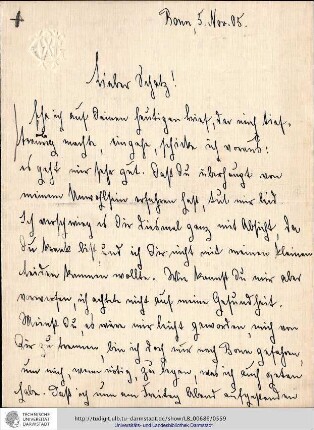 Bonn, 5. Nov. 05.
Lieber Schatz!
Ehe ich auf Deinen heutigen Brief, der mich tief-
traurig machte, eingehe, schicke ich voraus:
es geht mir sehr gut. Daß Du überhaupt von
meinem Unwohlsein erfahren hast, tut mir leid.
Ich verschwieg es Dir diesmal ganz mit Absicht, da
Du krank bist und ich Dir nicht mit meinen kleinen
Leiden kommen wollte. Wie kannst Du mir aber
vorwerfen ich achtete nicht auf meine Gesundheit.
Meinst Du, es wäre mir leicht geworden, mich von
Dir zu trennen, bin ich doch nur nach Bonn gefahren,
um mich, wenn nötig, zu legen, was ich auch getan
habe. Daß ich nun am Freitag Abend aufgestanden
TECHNISCHE
UNIVERSITÄT
DARMSTADT
http://tudigit.ulb.tu-darmstadt.de/show/LB_00689/0559
Universitäts- und Landesbibliothek Darmstadt